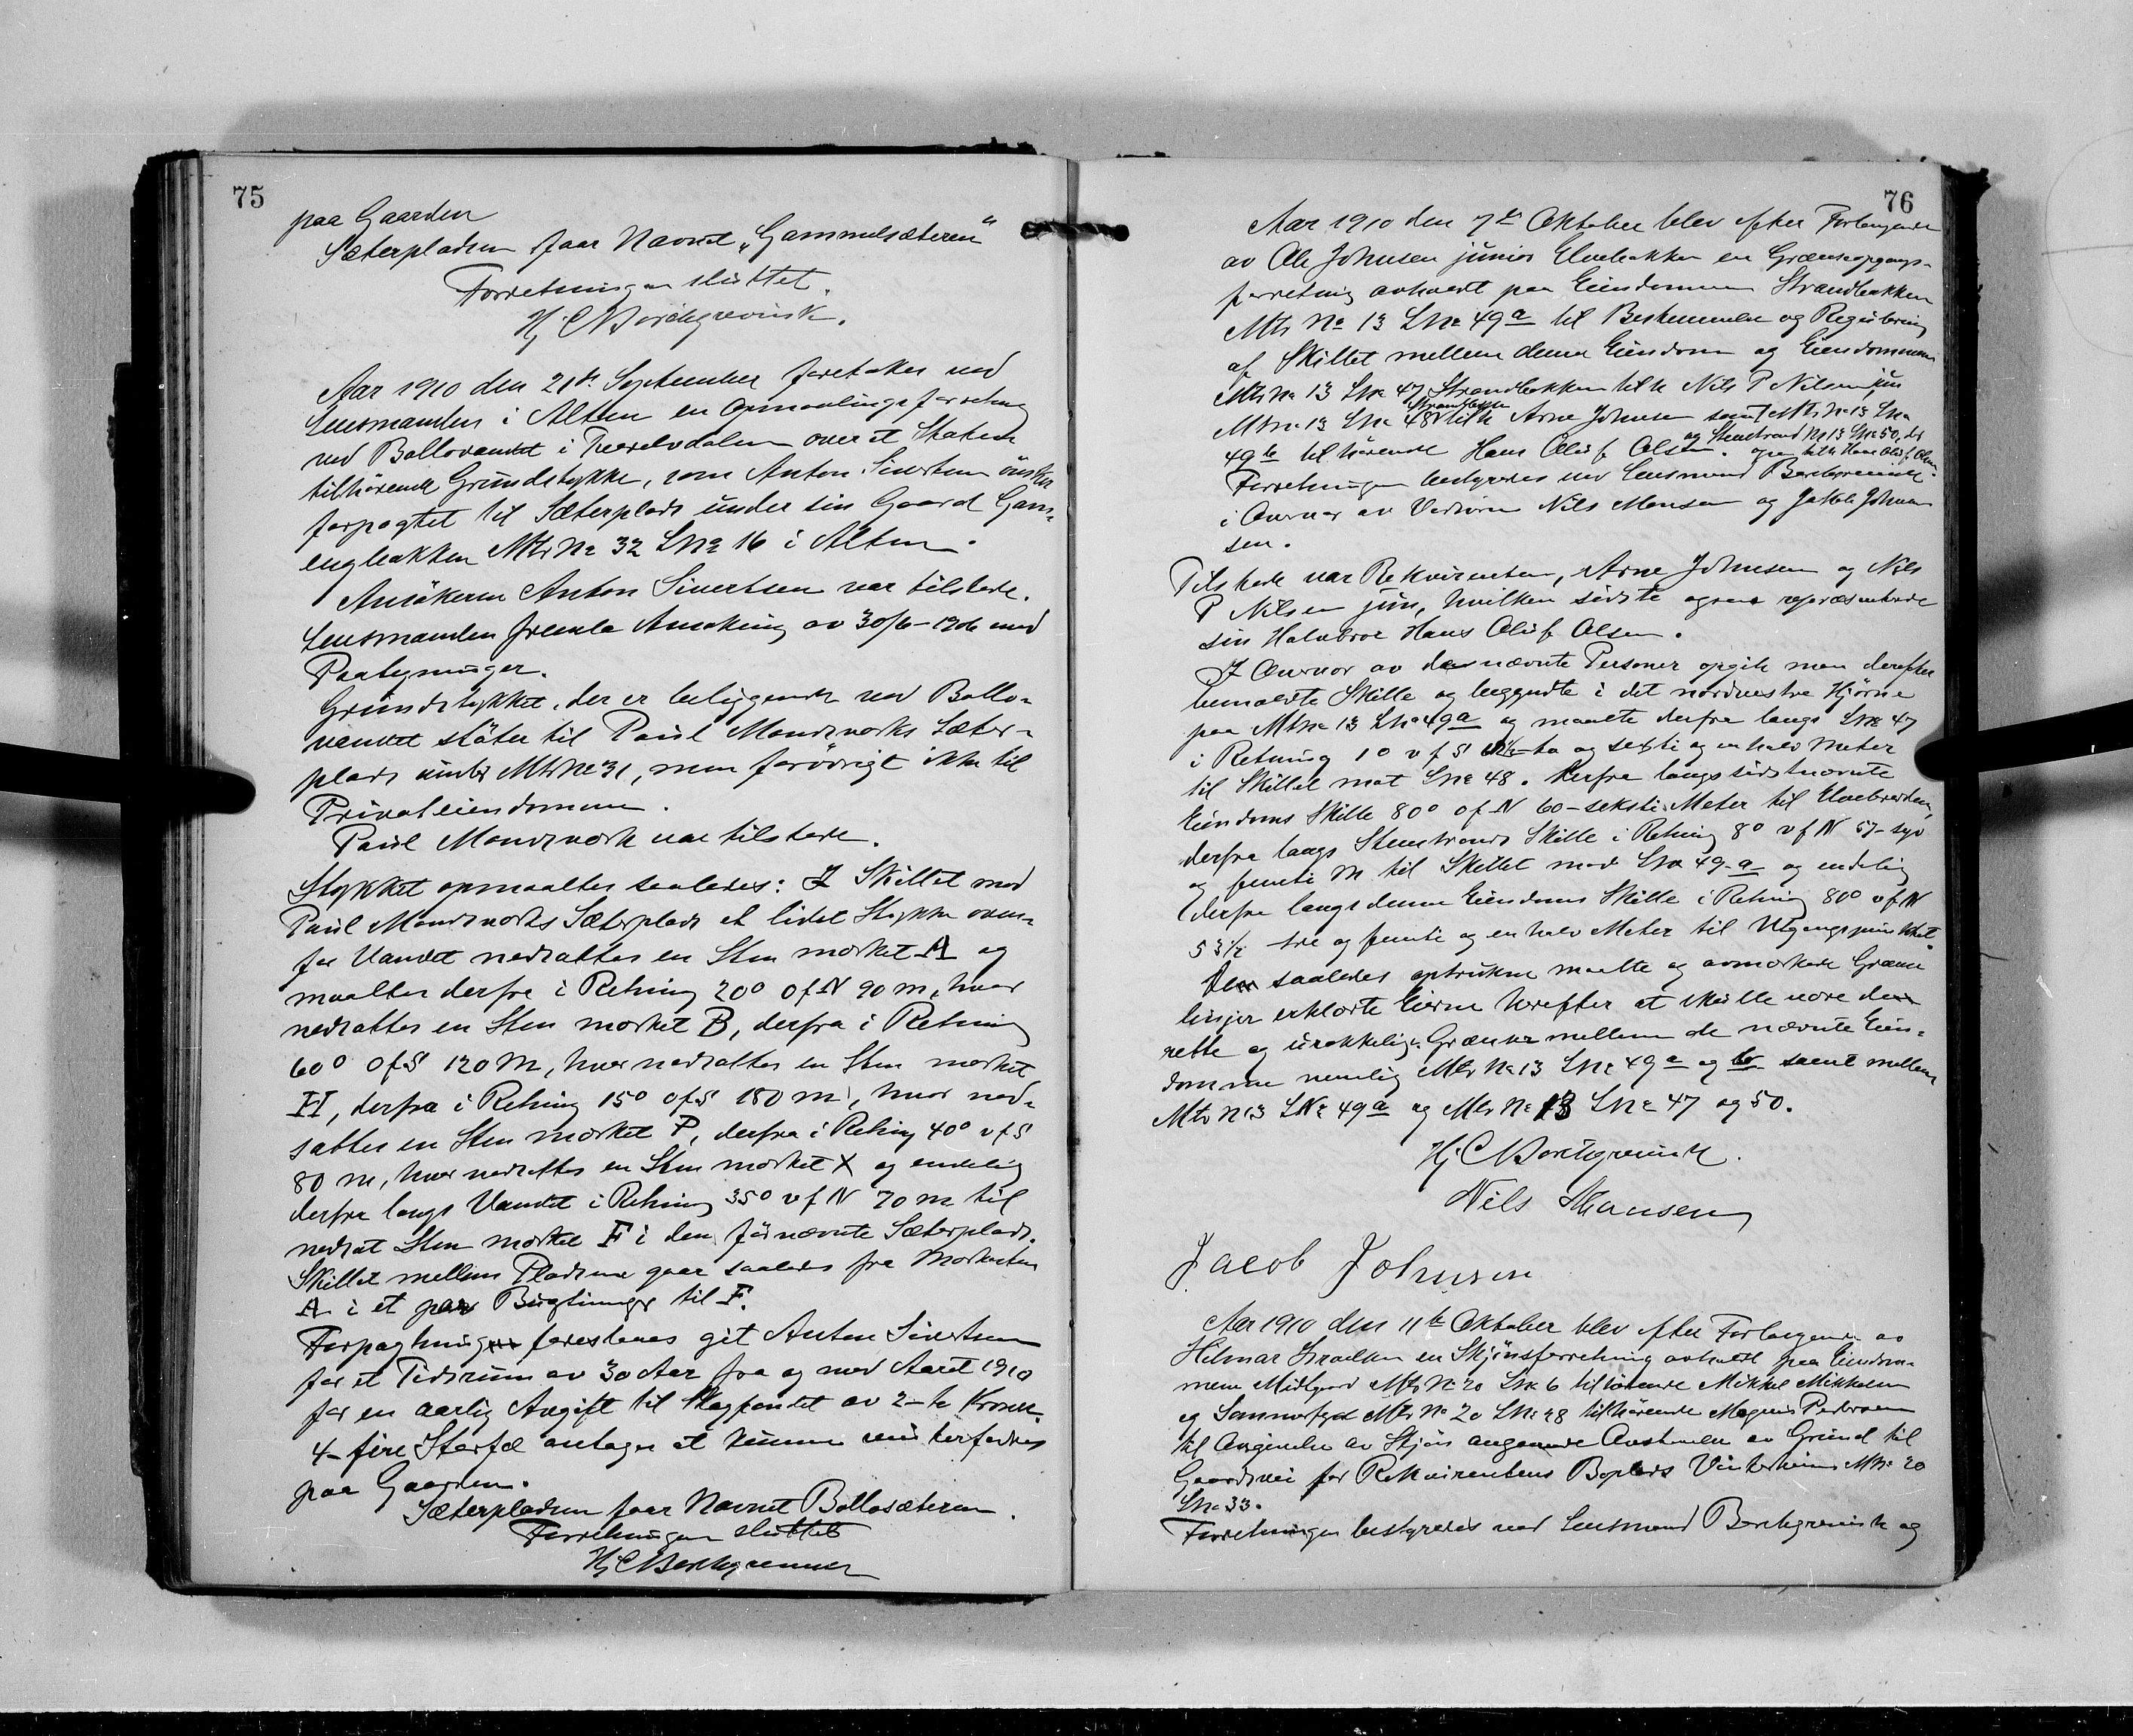 75
paa Gaarden
Sæterpladsen faar Navnet „Gammelsæteren“
Forretningen sluttet.
Hj C Borchgrevink.
Aar 1910 den 21de September foretokes ved
Lensmanden i Alten en Opmaalingsforretning
ved Bollovandet i Tverelvdalen over et Staten
tilhörende Grundstykke, som Anton Sivertsen önsker
forpagtet til Sæterplads under sin Gaard Gam-
engbakken Mtr No 32 LNo 16 i Alten.
Ansökeren Anton Sivertsen var tilstede.
Lensmanden fremla Ansökning av 30/6-1906 med
Paategninger.
Grundstykket, der er beliggende ved Bollo-
vandet stöter til Paul Mondsnæsks Sæter-
plads under Mtr No 31, men forövrigt ikke til
Privateiendomme.
Paul Mondsnæsk var tilstede.
Stykket opmaaltes saaledes: I Skillet med
Paul Mondsnæsks Sæterplads et lidet Stykke oven-
for Vandet nedsattes en Sten mærket A og
maaltes derfra i Retning 20° Ø f N 90 m, hvor
nedsattes en Sten mærket B, derfra i Retning
60° Ø f S 120 M, hvor nedsattes en Sten mærket
H, derfra i Retning 15° Ø f S 180 m, hvor ned-
sattes en Sten mærket P, derfra i Retning 40° v f S
80 m, hvor nedsattes en Sten mærket X og endelig
derfra langs Vandet i Retning 35° v f N 70 m til
nedsat Sten mærket F i den förnævnte Sæterplads.
Skillet mellem Pladsene gaar saaledes fra Mærkesten
A i et par Bugtninger til F.
Forpagtningen forestaaes git Anton Sivertsen
for et Tidsrum av 30 Aar fra og med Aaret 1910
for en aarlig Avgift til Skogfondet av 2-to Kroner.
4-fire Storfæ antages at kunne vinterfødes
paa Gaarden.
Sæterpladsen faar Navnet Bollosæteren.
Forretningen sluttet
Hj C Borchgrevink
76
Aar 1910 den 7de Oktober blev efter Forlangende
av Ole Johnsen junior Elvebakken en Grænseopgangs-
forretning avholdt paa Eiendommen Strandbakken
Mtr No 13 LNo 49a til Bestemmelse og Regulering
af Skillet mellem denne Eiendom og Eiendommene
Mtr No 13 LNo 47 Strandbakken tilh Nils P Nilsen jun
Mtr No 13 LNo 48 Strandbakken tilh Arne Johnsen samt Mtr No 13 LNo
49b tilhörende Hans Oluf Olsen. og Stenstrand No 13 LNo 50, tilh Hans Oluf Olsen.
Forretningen bestyredes ved Lensmand Borchgrevink
i Overvær av Vidnerne Nils Monsen og Jakob Johnsen
sen.
Tilstede var Rekvirenten, Arne Johnsen og Nils
P Nilsen jun, hvilken sidste ogsaa repræsenterede
sin Halvbror Hans Oluf Olsen.
I Overvær av de nævnte Personer opgik man derefter
bemældte Skille og begyndte i det nordvestre Hjörne
paa Mtr No 13 LNo 49a og maalte derfra langs LNo 47
i Retning 1° v f S 62½-to og seksti og en halv Meter
til Skillet mot LNo 48. Derfra langs sidstnævnte
Eiendoms Skille 80° ø f N 60-seksti Meter til Elvebredden,
derfra langs Stenstrands Skille i Retning 8° v f N 57-syv
og femti M til Skillet mod LNo 49a og endelig
derfra langs denne Eiendoms Skille i Retning 80° v f N
53½ tre og femti og en halv Meter til Utgangspunktet.
De saaledes optrukne maalte og avmærkede Grænse
linjer erklærte Eierne herefter at skulle være de
rette og urokkelige Grænser mellem de nævnte Eien-
domme nemlig Mtr No 13 LNo 49a og b samt mellem
Mtr No 13 LNo 49a og Mtr No 13 LNo 47 og 50.
Hj C Borchgrevink.
Nils Mansen
Jacob Johnsen
Aar 1910 den 11te Oktober blev efter Forlangende av
Hilmar Israelsen en Skjönsforretning avholdt paa Eiendom-
mene Midtgaard Mtr No 20 LNo 6 tilhörende Mikkel Mikkelsen
og Sommerfryd Mtr No 20 LNo 28 tilhörende Magnus Pedersen
til Avgivelse av Skjön angaaende Avstaaelse av Grund til
Gaardsvei for Rekvirentens Boplads Vinterheim Mtr No 20
LNo 33.
Forretningen bestyredes ved Lensmand Borchgrevink og